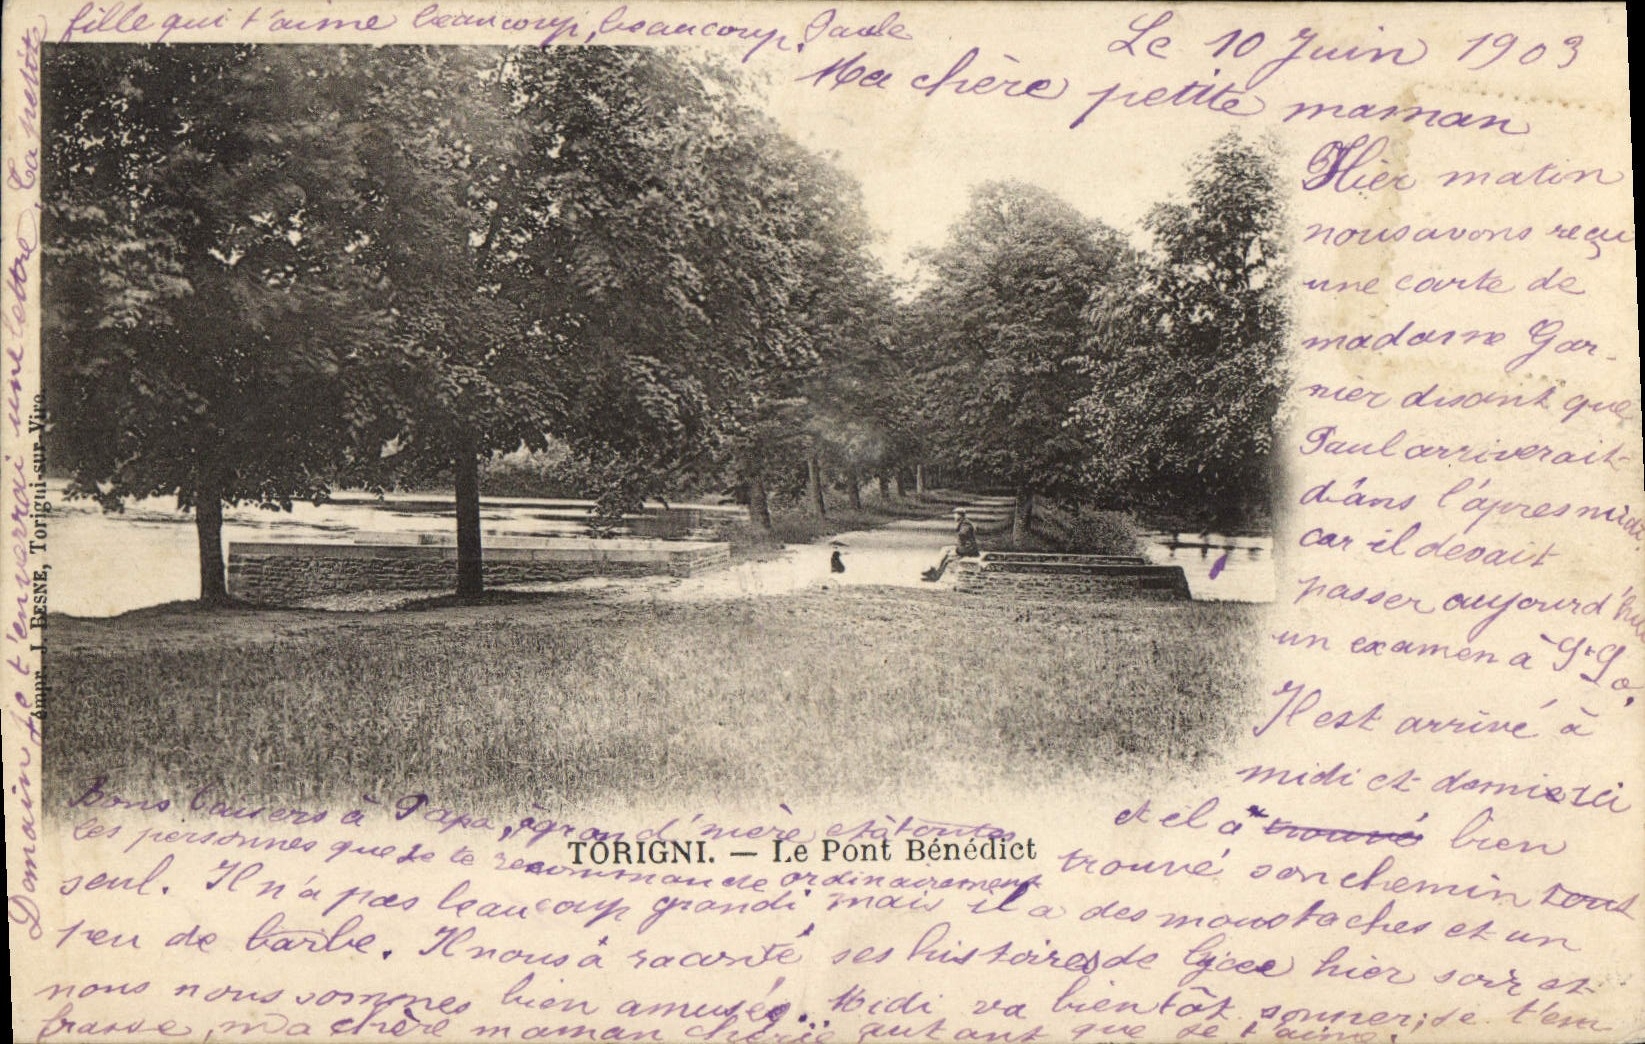 Le 10 Juin 1903
Ma chère petite maman
Hier matin
nous avons reçu
une carte de
madame Gar-
nier disant que
Paul arriverait
dans l'après midi
car il devait
passer aujourd'hui
un examen à St Lo.
Il est arrivé à
midi et demie ici
et il a trouvé bien
trouvé son chemin tout
seul. Il n'a pas beaucoup grandi mais il a des moustaches et un
peu de barbe. Il nous à raconté ses histoires de lycée hier soir et
nous nous sommes bien amusés. Midi va bientôt sonner; je t'em
brasse, ma chère maman chérie autant que je t'aime.
Bons baisers à Papa, à grand'mère et à toutes
les personnes que je te recommande ordinairement
Demain je t'enverrai une lettre. Ta petite
fille qui t'aime beaucoup, beaucoup. Paule
TORIGNI. — Le Pont Bénédict
Impr. J. BESNE, Torigni-sur-Vire.